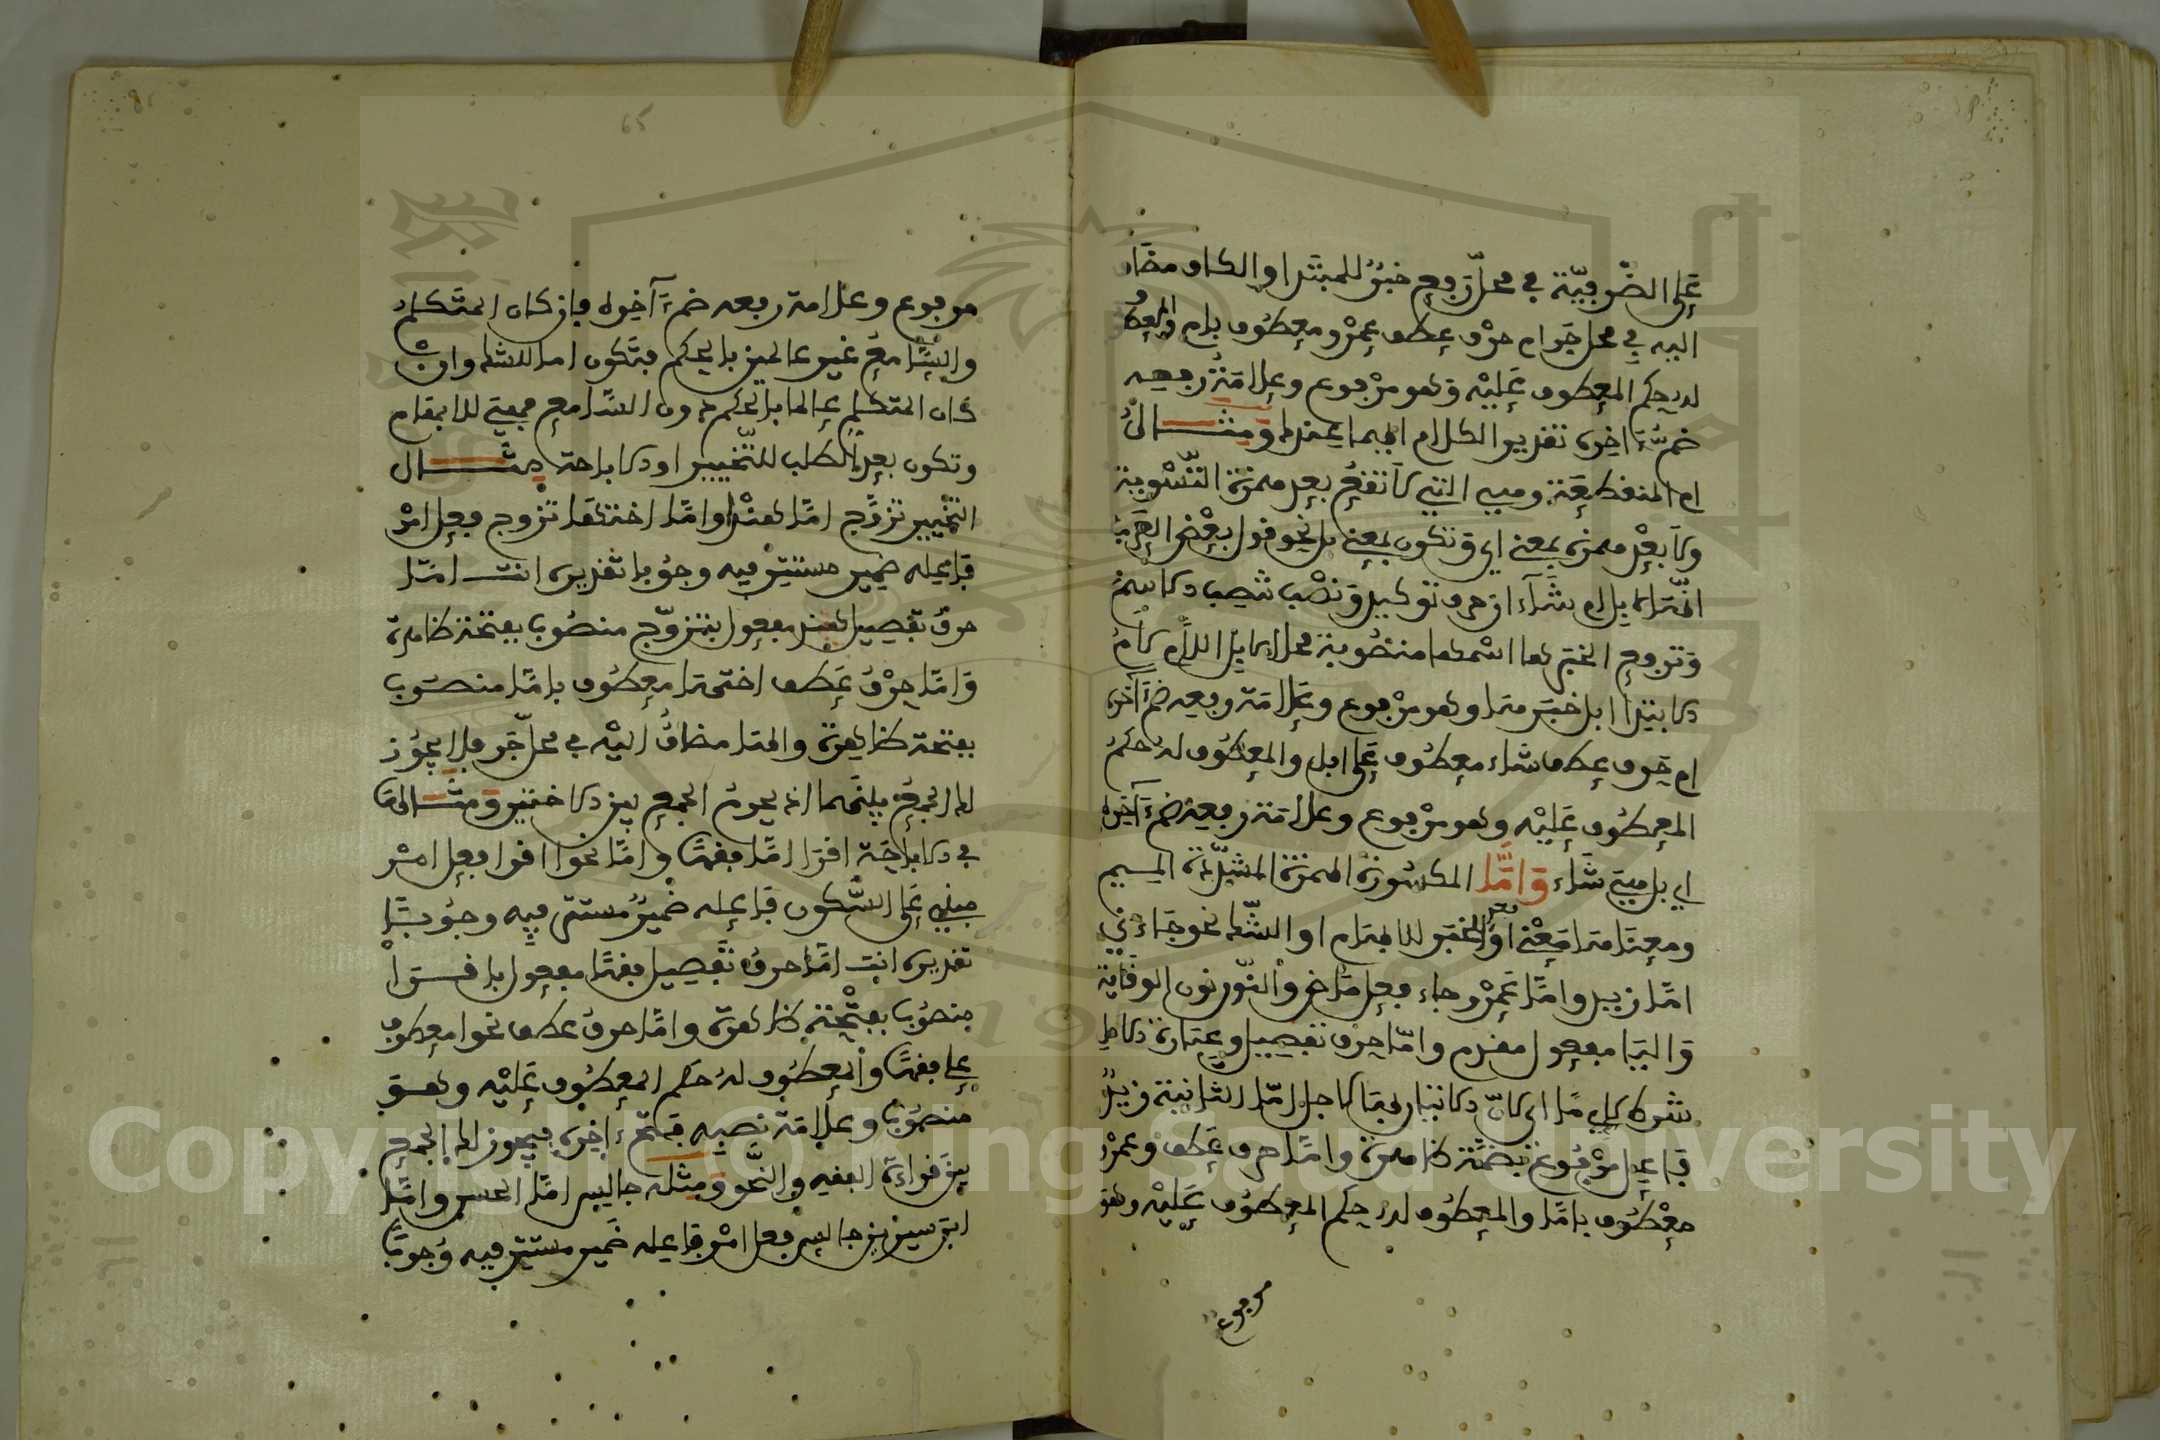 على الظرفية في محل رفع خبر للمبتدا والكاف مضاف
اليه في محل جر ام حرف عطف عمرو معطوف بام والمعطوف
له حكم المعطوف عليه وهو مرفوع وعلامة رفعه
ضمة اخره تقدير الكلام ايهما عندك ومثال
ام المنقطعة وهي التي لا تقع بعد همزة التسوية
ولا بعد همزة بمعنى اي وتكون بمعنى بل نحو قول بعض العرب
انها لابل ام شاء ان حرف توكيد ونصب تنصب الاسم
وترفع الخبر لها اسمها منصوبة محلا لابل اللام لام
الابتدا ابل خبرها وهو مرفوع وعلامة رفعه ضم آخره
ام حرف عطف شاء معطوف على ابل والمعطوف له حكم
المعطوف عليه وهو مرفوع وعلامة رفعه ضم آخره
اي بل هي شاء واما المكسورة الهمزة المشددة الميم
ومعناها معنى او بعد الخبر للابهام او الشك نحو جاءني
اما زيد واما عمرو جاء فعل ماض والنون نون الوقاية
واليا مفعول مقدم واما حرف تفصيل وعبارة
زيد
فاعل مرفوع بضمة ظاهرة واما حرف عطف وعمرو
معطوف باما والمعطوف له حكم المعطوف عليه وهو
مرفوع
65
مرفوع وعلامة رفعه ضم آخره فان كان المتكلم
والسامع غير عالمين بالحكم فتكون اما للشك وان
كان المتكلم عالما بالحكم دون السامع فهي للابهام
وتكون بعد الطلب للتخيير او الاباحة مثال
التخيير تزوج اما هندا واما اختها تزوج فعل امر
فاعله ضمير مستتر فيه وجوبا تقديره انت اما
حرف تفصيل هند مفعول بتزوج منصوب بفتحة ظاهرة
واما حرف عطف اختها معطوف باما منصوب
بفتحة ظاهرة والها مضاف اليه في محل جر فلا يجوز
له الجمع بينهما اذ يحرم الجمع بين الاختين ومثالها
في الاباحة اقرا اما فقها واما نحوا اقرا فعل امر
مبني على السكون فاعله ضمير مستتر فيه وجوبا
تقديره انت اما حرف تفصيل فقها مفعول باقرا
منصوب بفتحة ظاهرة واما حرف عطف نحوا معطوف
على فقها والمعطوف له حكم المعطوف عليه وهو
منصوب وعلامة نصبه فتح اخره فيجوز له الجمع
بين قراءة الفقه والنحو ومثله جالس اما الحسن واما
ابن سيرين جالس فعل امر فاعله ضمير مستتر فيه وجوبا
Copyright © King Saud University